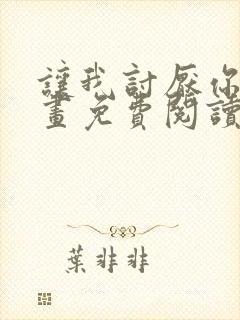 讓我討厭你
畫免費閱讀
葉非非